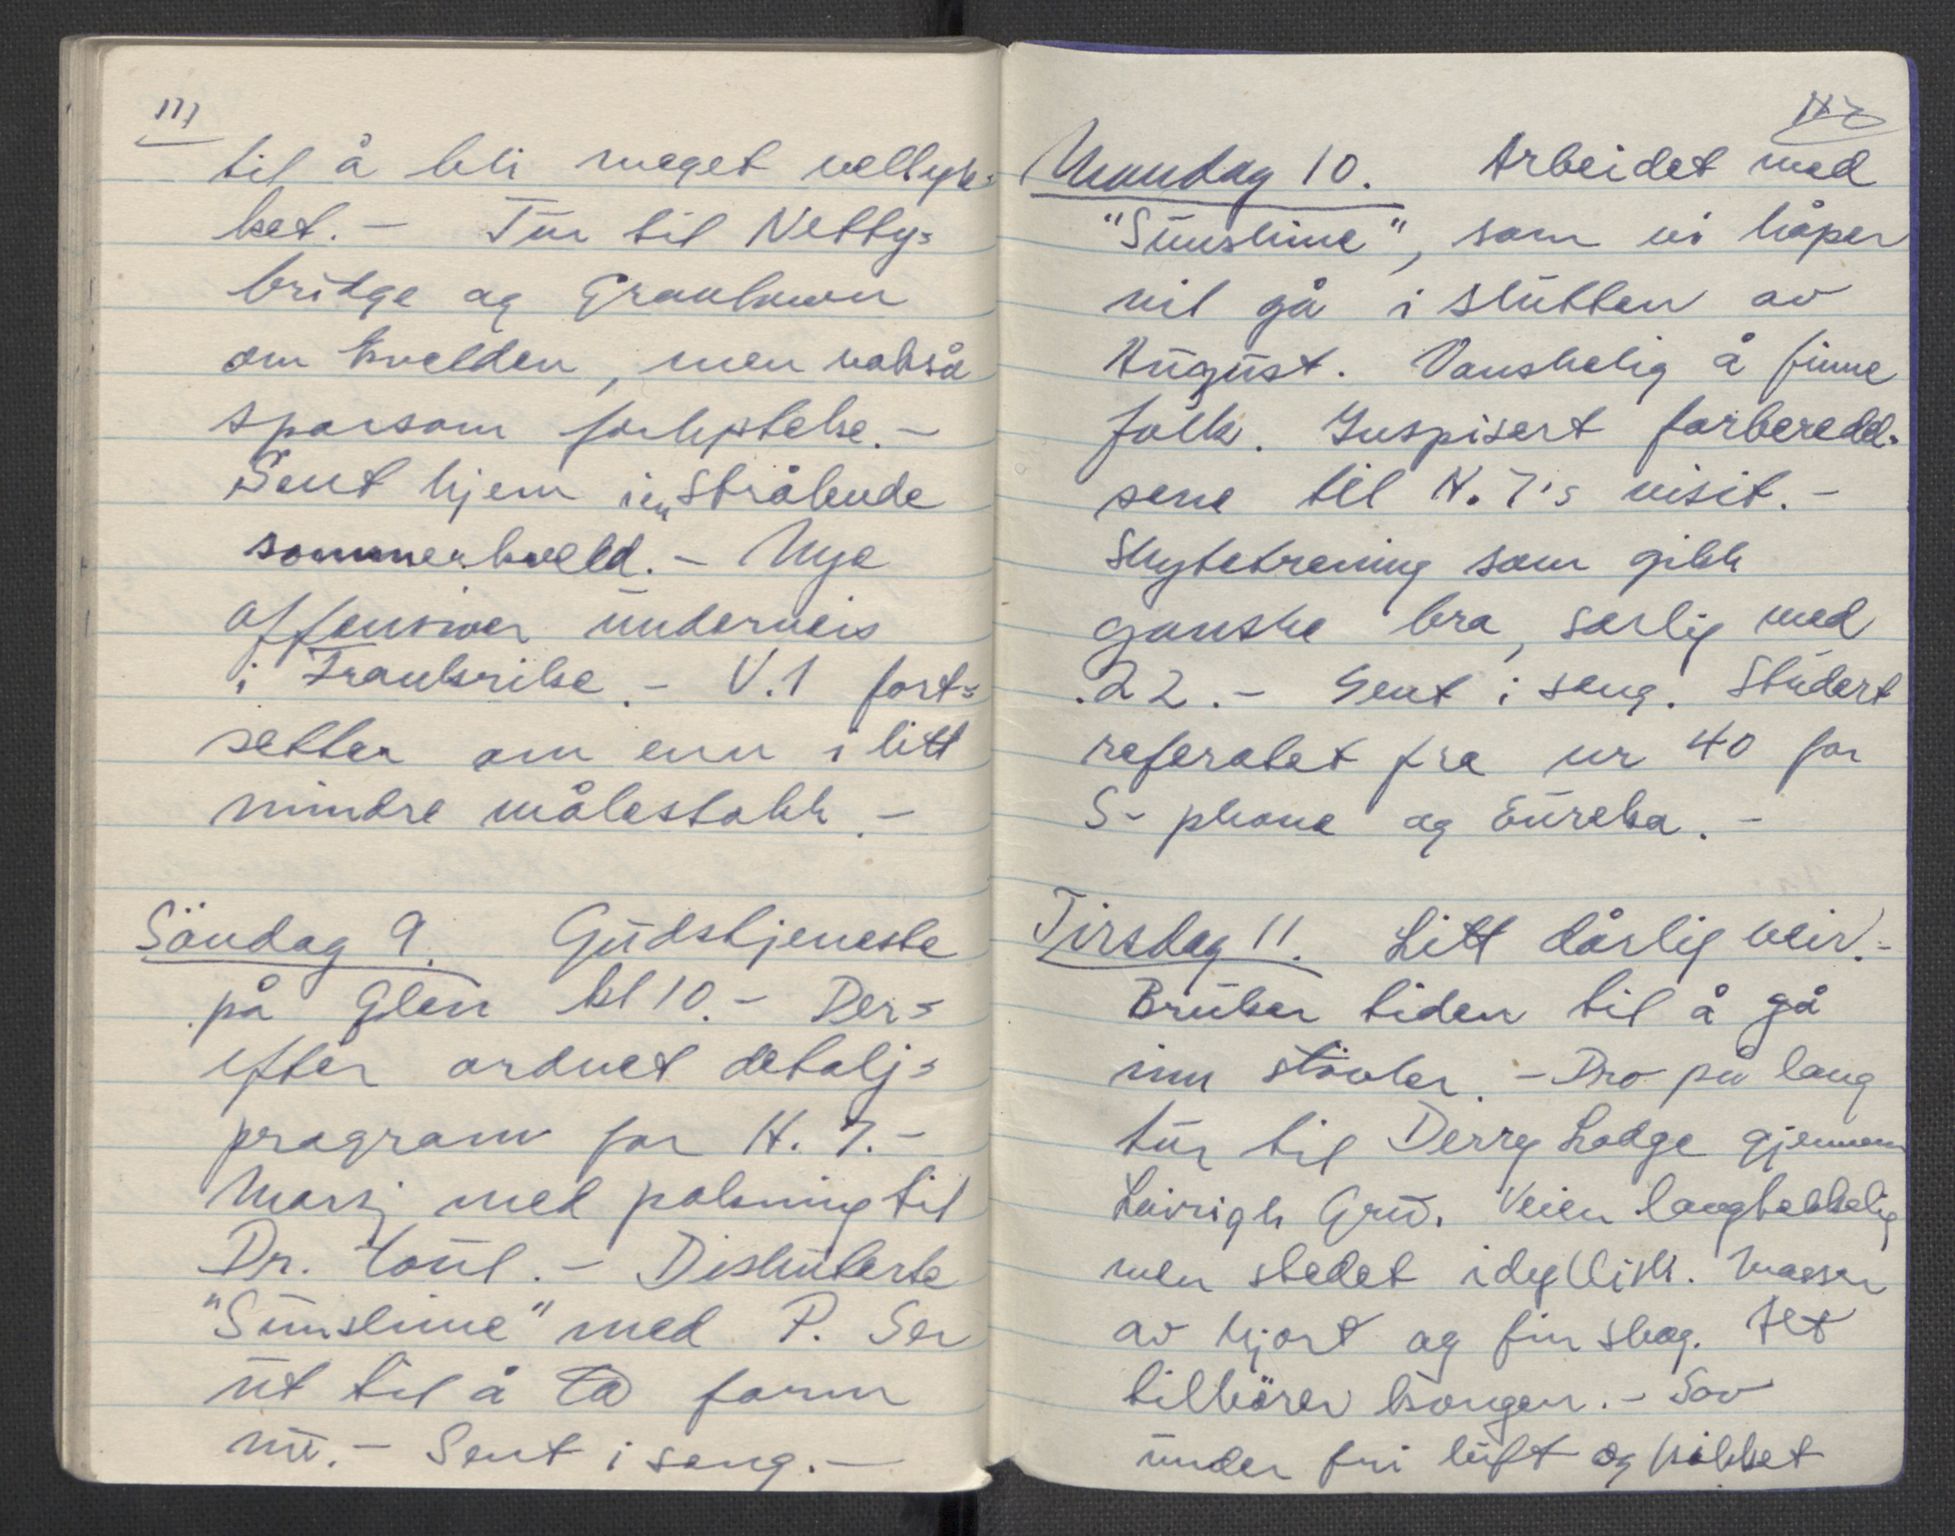 111
til å bli meget vellyk=
ket. - Tur til Netty=
bridge og Grantown
om kvelden, men også
sparsom forlystelse. -
Sent hjem i en strålende
sommerkveld. - Nye
offensiver underveis
i Frankrike. - V.1 fort=
setter om enn i litt
mindre målestokk. -
Söndag 9. Gudstjeneste
på Glen kl 10. - Der=
efter ordnet detalj=
program for H. 7. -
Marsj med pakning til
Dr. Youl. - Diskuterte
"Sunshine" med P. Ser
ut til å ta form
nu. - Sent i seng. -
112
Mandag 10. Arbeidet med
"Sunshine", som vi håper
vil gå i slutten av
August. Vanskelig å finne
folk. Inspisert forberedel-
sene til H. 7's visit. -
Skytetrening som gikk
ganske bra, særlig med
.22. - Sent i seng. Studert
referatet fra nr 40 for
S-phone og Eureka. -
Tirsdag 11. Litt dårlig veir. -
Bruker tiden til å gå
inn støvler. - Dro på lang
tur til Derry Lodge gjennem
Lairigh Gru. Veien langtekkelig
men stedet idyllisk. Masser
av hjort og fin skog. Alt
tilhörer kongen. - Sov
under fri luft og kikket